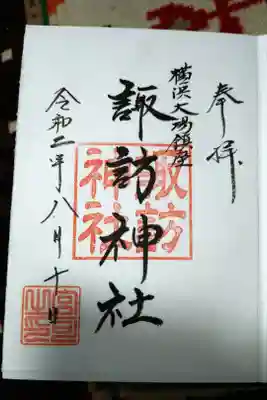 奉拝
横浜大場鎮座
諏訪神社
諏訪
神社
令和二年八月十日
宮司之印